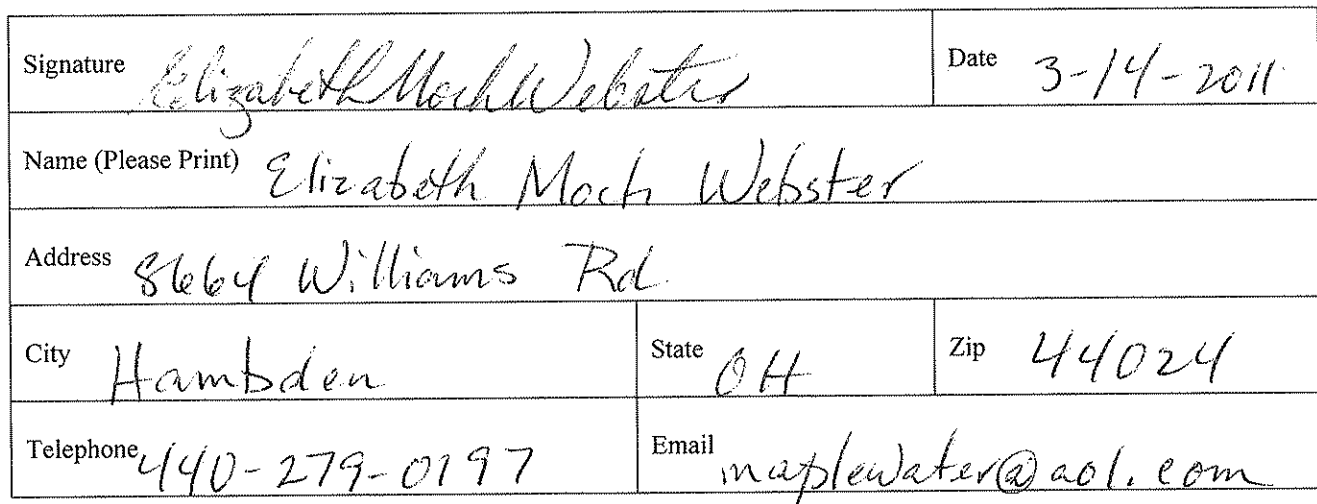 Signature Elizabeth Moch Webster Date 3-14-2011
Name (Please Print) Elizabeth Moch Webster
Address 8664 Williams Rd
City Hambden State OH Zip 44024
Telephone 440-279-0197 Email maplewater@aol.com